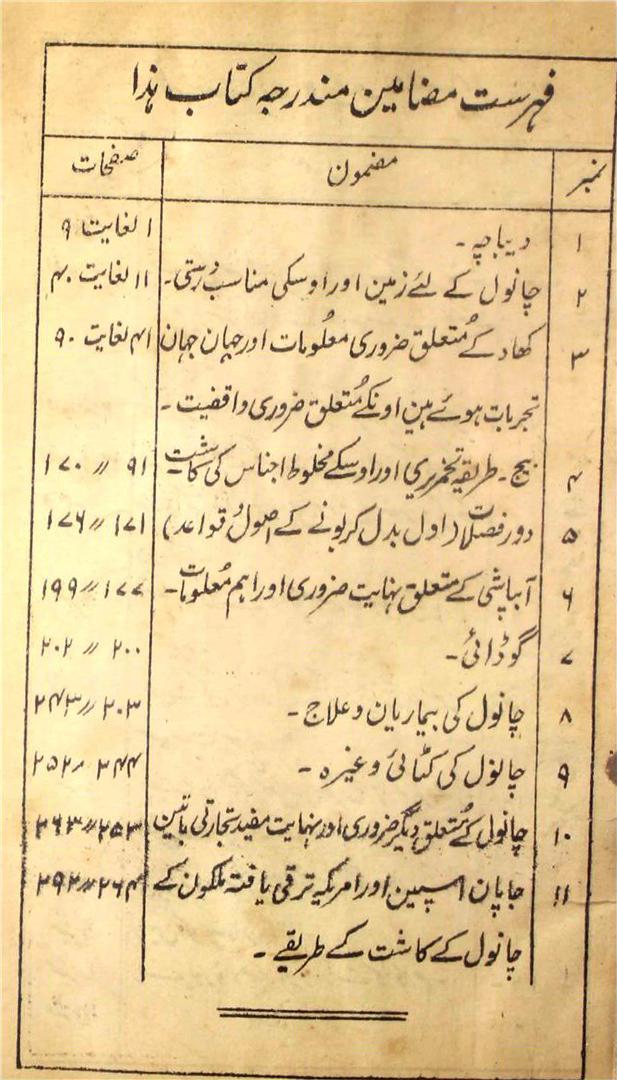 فہرست مضامین مندرجہ کتاب ہذا
نمبر مضمون صفحات
۱ دیباچہ۔ ۱ لغایت ۹
۲ چانول کے لئے زمین اور اوسکی مناسب دُرستی۔ ۱۱ لغایت ۴۰
۳ کھاد کے مُتعلق ضروری معلُومات اور جہان جہان ۴۱ لغایت ۹۰
تجربات ہوئے ہین اونکے مُتعلق ضروری واقفیت۔
۴ بیج۔ طریقہ تخمریزی اور اوسکے مخلوط اجناس کی کاشت ۹۱ // ۱۷۰
۵ دور فصلات (اول بدل کر بونے کے اصول قواعد) ۱۷۱ // ۱۷۶
۶ آبپاشی کے متعلق نہایت ضروری اور اہم معُلومات۔ ۱۷۷ // ۱۹۹
۷ گوڈائی۔ ۲۰۰ // ۲۰۲
۸ چانول کی بیماریان و علاج۔ ۲۰۳ // ۲۴۳
۹ چانول کی کٹائی وغیرہ۔ ۲۴۴ ۲۵۲
۱۰ چانول کے مُتعلق دیگر ضروری اور نہایت مفید تجارتی باتین ۲۵۳ // ۲۶۳
۱۱ جاپان اسپین اور امریکہ ترقی یافتہ ملکون کے ۲۶۴ // ۲۹۲
چانول کے کاشت کے طریقے۔